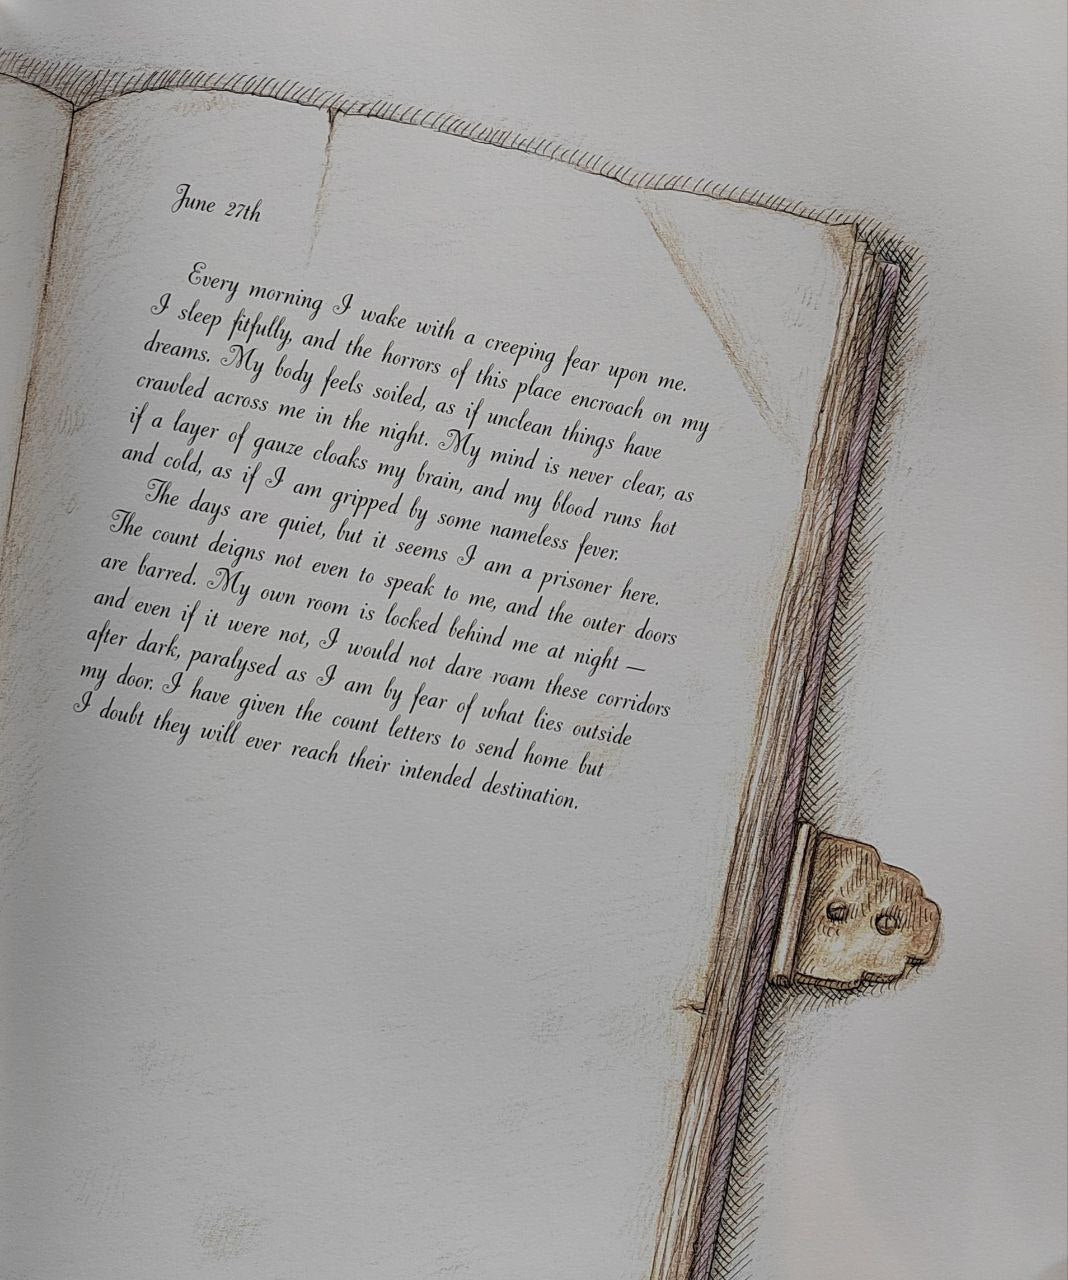 June 27th
Every morning I wake with a creeping fear upon me.
I sleep fitfully, and the horrors of this place encroach on my
dreams. My body feels soiled, as if unclean things have
crawled across me in the night. My mind is never clear, as
if a layer of gauze cloaks my brain, and my blood runs hot
and cold, as if I am gripped by some nameless fever.
The days are quiet, but it seems I am a prisoner here.
The count deigns not even to speak to me, and the outer doors
are barred. My own room is locked behind me at night –
and even if it were not, I would not dare roam these corridors
after dark, paralysed as I am by fear of what lies outside
my door. I have given the count letters to send home but
I doubt they will ever reach their intended destination.